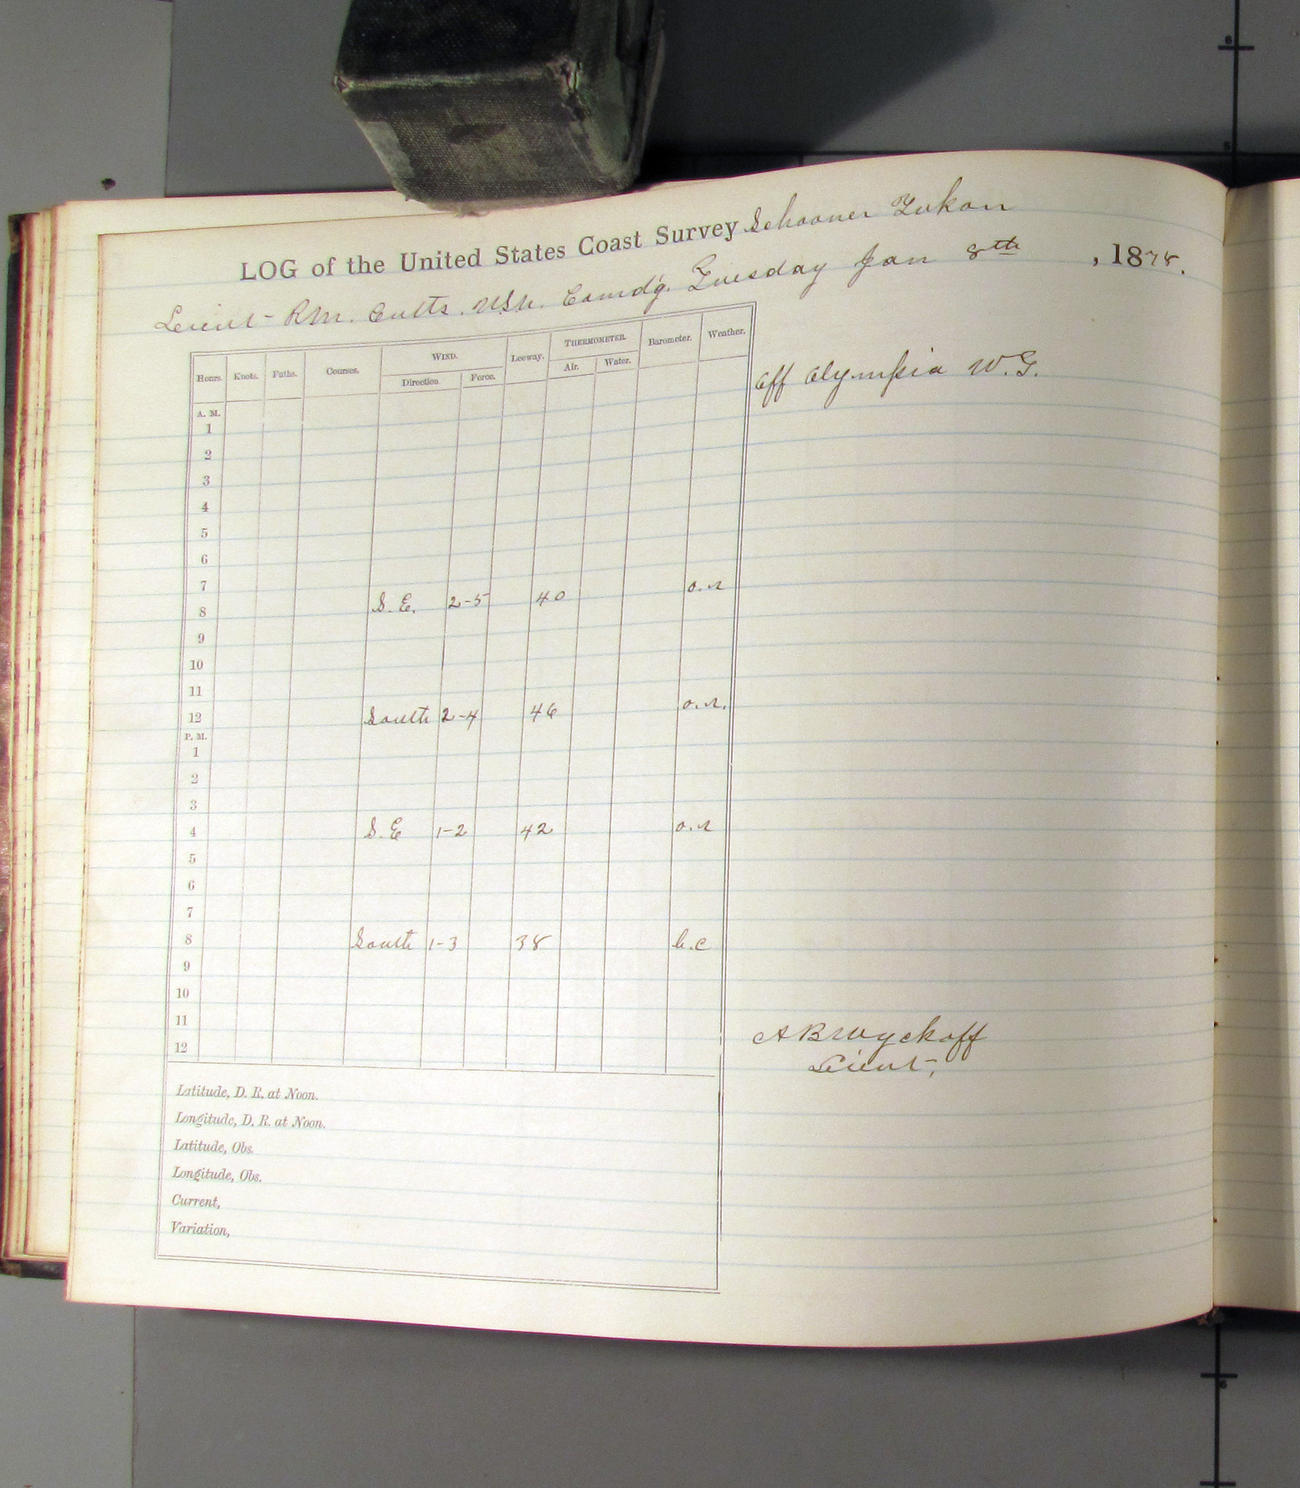 LOG of the United States Coast Survey Schooner Yukon
Lieut R.M. Cutts. USN. Comdg. Tuesday Jan 8th , 1878.
Hours. Knots. Faths. Courses. WIND. Leeway. THERMOMETER. Barometer. Weather.
Direction. Force. Air. Water.
Off Olympia W.T.
A. M.
1
2
3
4
5
6
7
8 S.E. 2-5 40 o.r
9
10
11
12 South 2-4 46 o.r.
P. M.
1
2
3
4 S.E 1-2 42 o.r
5
6
7
8 South 1-3 38 b.c
9
10
11
12
A B Wyckoff
Lieut,
Latitude, D. R. at Noon.
Longitude, D. R. at Noon.
Latitude, Obs.
Longitude, Obs.
Current,
Variation,
6
5
6